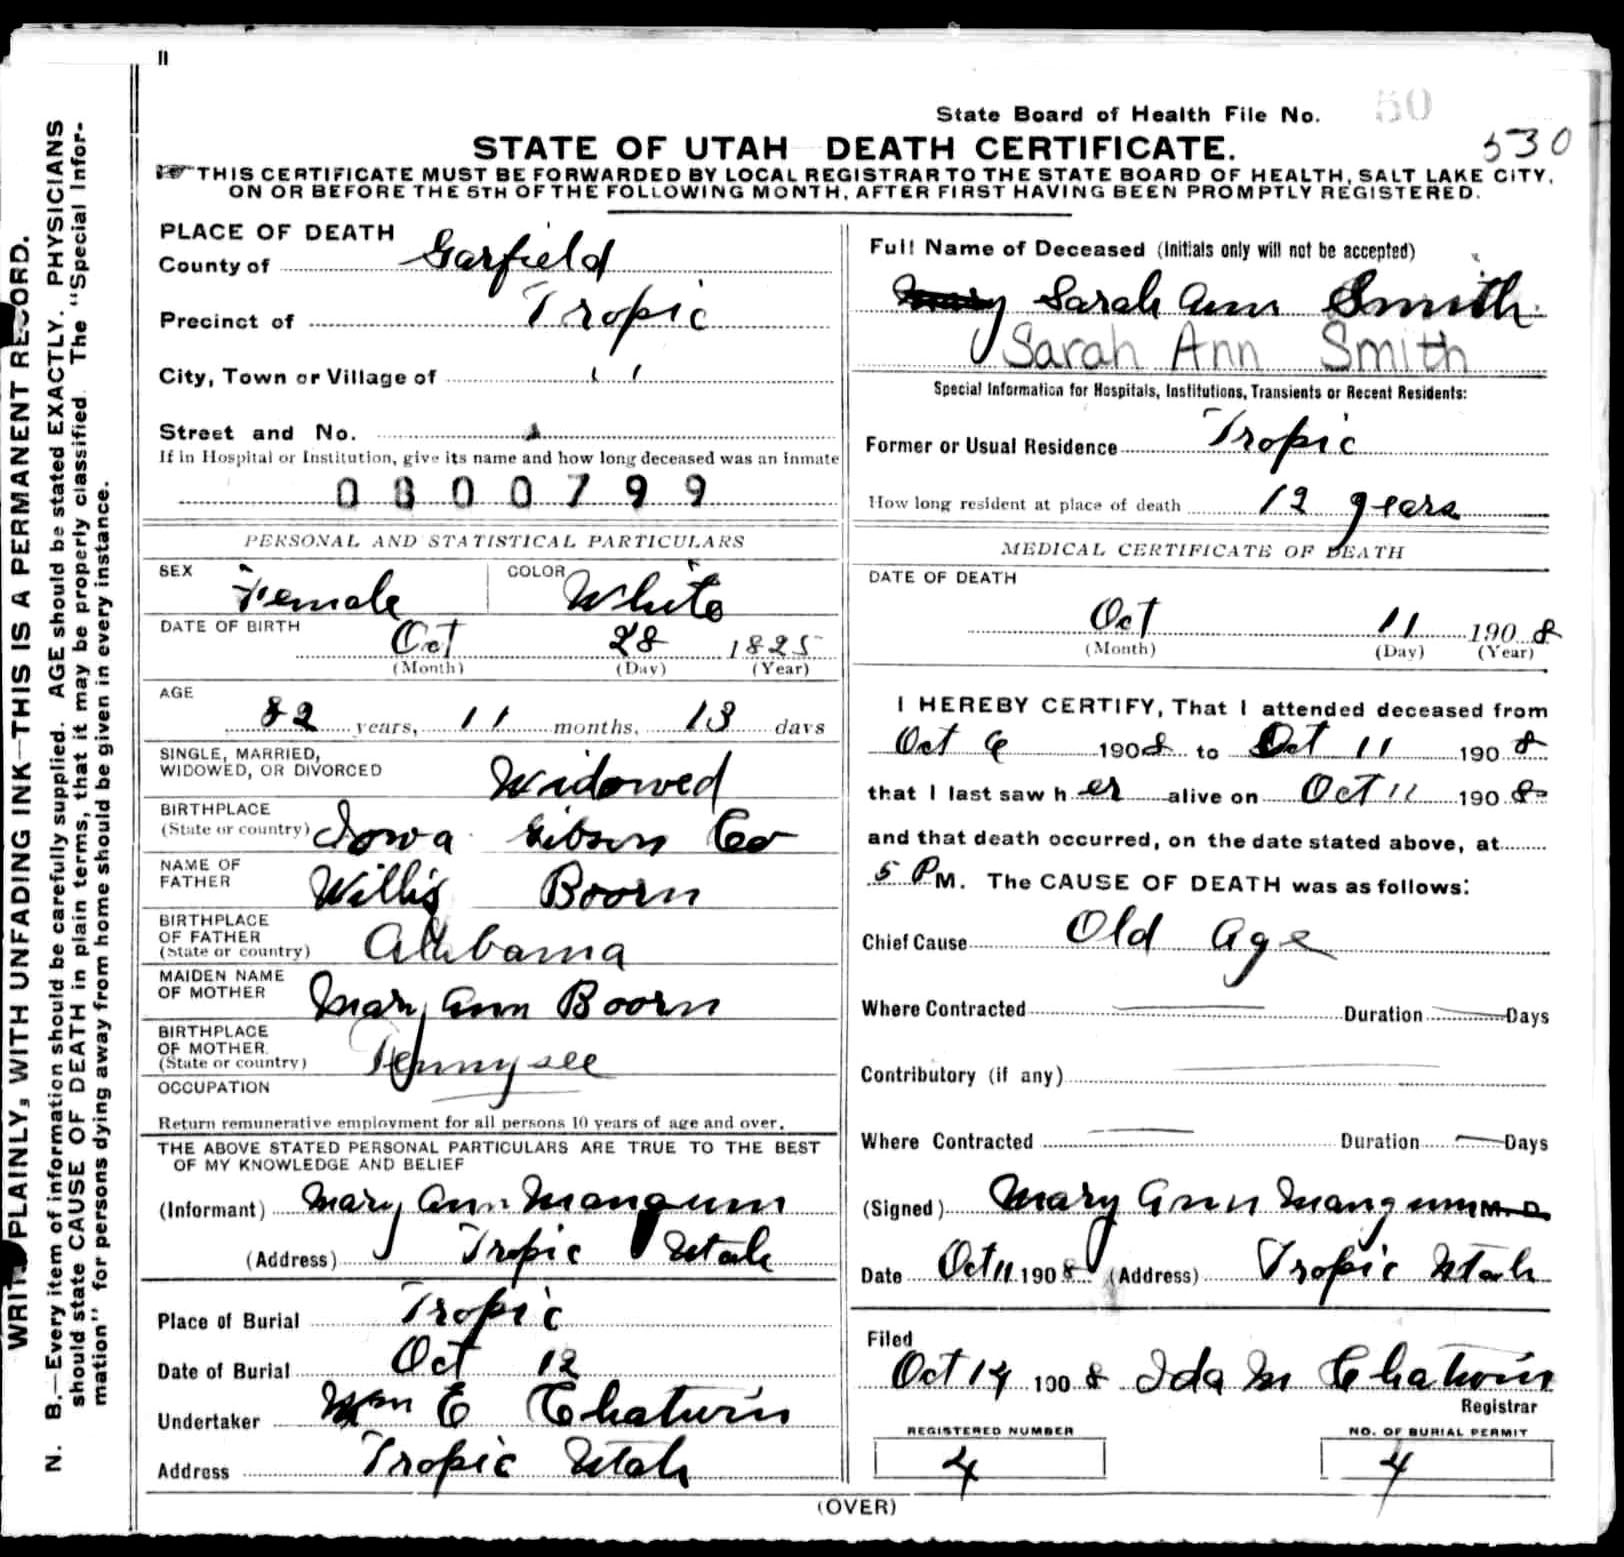 State Board of Health File No. 50
530
STATE OF UTAH DEATH CERTIFICATE.
THIS CERTIFICATE MUST BE FORWARDED BY LOCAL REGISTRAR TO THE STATE BOARD OF HEALTH, SALT LAKE CITY,
ON OR BEFORE THE 5TH OF THE FOLLOWING MONTH, AFTER FIRST HAVING BEEN PROMPTLY REGISTERED.
WRITE PLAINLY, WITH UNFADING INK—THIS IS A PERMANENT RECORD.
N. B.—Every item of information should be carefully supplied. AGE should be stated EXACTLY. PHYSICIANS
should state CAUSE OF DEATH in plain terms, that it may be properly classified. The "Special Infor-
mation" for persons dying away from home should be given in every instance.
PLACE OF DEATH
County of Garfield
Precinct of Tropic
City, Town or Village of " "
Street and No.
If in Hospital or Institution, give its name and how long deceased was an inmate
0300799
PERSONAL AND STATISTICAL PARTICULARS
SEX Female COLOR White
DATE OF BIRTH
Oct 28 1825
(Month) (Day) (Year)
AGE
82 years, 11 months, 13 days
SINGLE, MARRIED,
WIDOWED, OR DIVORCED Widowed
BIRTHPLACE
(State or country) Iowa Gibson Co
NAME OF
FATHER Willis Boorn
BIRTHPLACE
OF FATHER
(State or country) Alabama
MAIDEN NAME
OF MOTHER Mary Ann Boorn
BIRTHPLACE
OF MOTHER
(State or country) Tennysee
OCCUPATION
Return remunerative employment for all persons 10 years of age and over.
THE ABOVE STATED PERSONAL PARTICULARS ARE TRUE TO THE BEST
OF MY KNOWLEDGE AND BELIEF
(Informant) Mary Ann Mangum
(Address) Tropic Utah
Place of Burial Tropic
Date of Burial Oct 12
Undertaker Wm E Chatwin
Address Tropic Utah
Full Name of Deceased (Initials only will not be accepted)
Mary Sarah Ann Smith
Sarah Ann Smith
Special Information for Hospitals, Institutions, Transients or Recent Residents:
Former or Usual Residence Tropic
How long resident at place of death 12 years
MEDICAL CERTIFICATE OF DEATH
DATE OF DEATH
Oct 11 1908
(Month) (Day) (Year)
I HEREBY CERTIFY, That I attended deceased from
Oct 6 1908 to Oct 11 1908
that I last saw her alive on Oct 11 1908
and that death occurred, on the date stated above, at
5 P M. The CAUSE OF DEATH was as follows:
Chief Cause Old Age
Where Contracted Duration Days
Contributory (if any)
Where Contracted Duration Days
(Signed) Mary Ann Mangum M. D.
Date Oct 11 1908 (Address) Tropic Utah
Filed
Oct 14 1908 Ida M Chatwin
Registrar
REGISTERED NUMBER
4
NO. OF BURIAL PERMIT
4
(OVER)